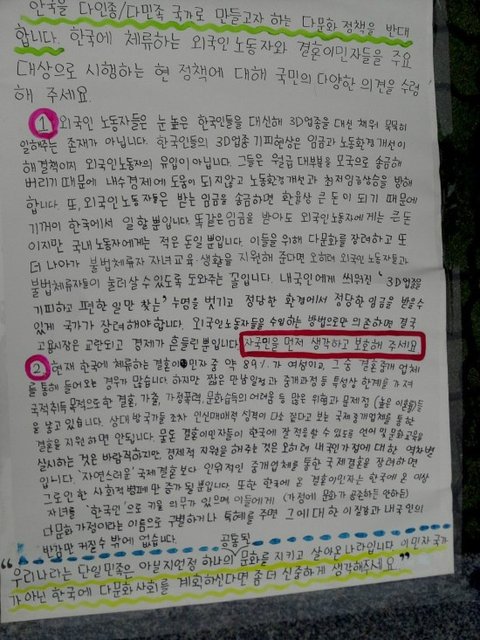 한국을 다인종/다민족 국가로 만들고자 하는 다문화 정책을 반대
합니다. 한국에 체류하는 외국인 노동자와 결혼이민자들을 주요
대상으로 시행하는 현 정책에 대해 국민의 다양한 의견을 수렴
해 주세요.
1 외국인 노동자들은 눈 높은 한국인들을 대신해 3D업종을 대신 채워 묵묵히
일해주는 존재가 아닙니다. 한국인들의 3D업종 기피현상은 임금과 노동환경 개선이
해결책이지 외국인노동자의 유입이 아닙니다. 그들은 월급 대부분을 모국으로 송금해
버리기 때문에 내수경제에 도움이 되지않고 노동환경개선과 최저임금상승을 방해
합니다. 또, 외국인 노동자는 받는 임금을 송금하면 환율상 큰 돈이 되기 때문에
기꺼이 한국에서 일할 뿐입니다. 똑같은 임금을 받아도 외국인 노동자에게는 큰 돈
이지만 국내 노동자에게는 적은 돈일 뿐입니다. 이들을 위해 다문화를 장려하고 또
더 나아가 불법체류자 자녀교육·생활을 지원해 준다면 오히려 외국인 노동자들과
불법체류자들이 눌러살 수 있도록 도와주는 꼴입니다. 내국인에게 씌워진 '3D업종을
기피하고 편한 일만 찾는' 누명을 벗기고 정당한 환경에서 정당한 임금을 받을수
있게 국가가 장려해야합니다. 외국인노동자들을 수입하는 방법으로만 의존하면 결국
고용시장은 교란되고 경제가 흔들린 뿐입니다. 자국민을 먼저 생각하고 보호해 주세요
2 현재 한국에 체류하는 결혼이민자 중 약 89%가 여성이고, 그 중 결혼중개 업체
를 통해 들어오는 경우가 많습니다. 하지만 짧은 만남일정과 중개과정등 특성상 한계를 가져
국적취득 목적으로한 결혼, 가출, 가정폭력, 문화습득의 어려움 등 많은 위험과 문제점 (높은 이혼율)등
을 낳고 있습니다. 상대 방국가들 조차 인신매매적 성격이 다소 짙다고 보는 국제중개업체를 통한
결혼을 지원하면 안됩니다. 물론 결혼이민자들이 한국에 잘 적응할 수 있도록 언어 및 문화교육을
실시하는 것은 바람직하지만, 경제적 지원을 해주는 것은 오히려 내국인가정에 대한 역차별
입니다. '자연스러운' 국제결혼보다 인위적인 중개업체를 통한 국제결혼을 장려하면
그로인한 사회적병폐만 증가될 뿐입니다. 또한 한국에 온 결혼이민자는 한국에 온 이상
자녀를 '한국인'으로 키울 의무가 있으며 이들에게 (가정에 문화가 공존하든 안하든)
다문화 가정이라는 이름으로 구별하거나 특혜를 주면 그에 대한 이질감과 내국인의
반감만 커질수 밖에 없습니다.
"우리나라는 단일민족은 아닐지언정 하나의 공통된 문화를 지키고 살아온 나라입니다. 이민자 국가
가 아닌 한국에 다문화 사회를 계획하신다면 좀 더 신중하게 생각해주세요."